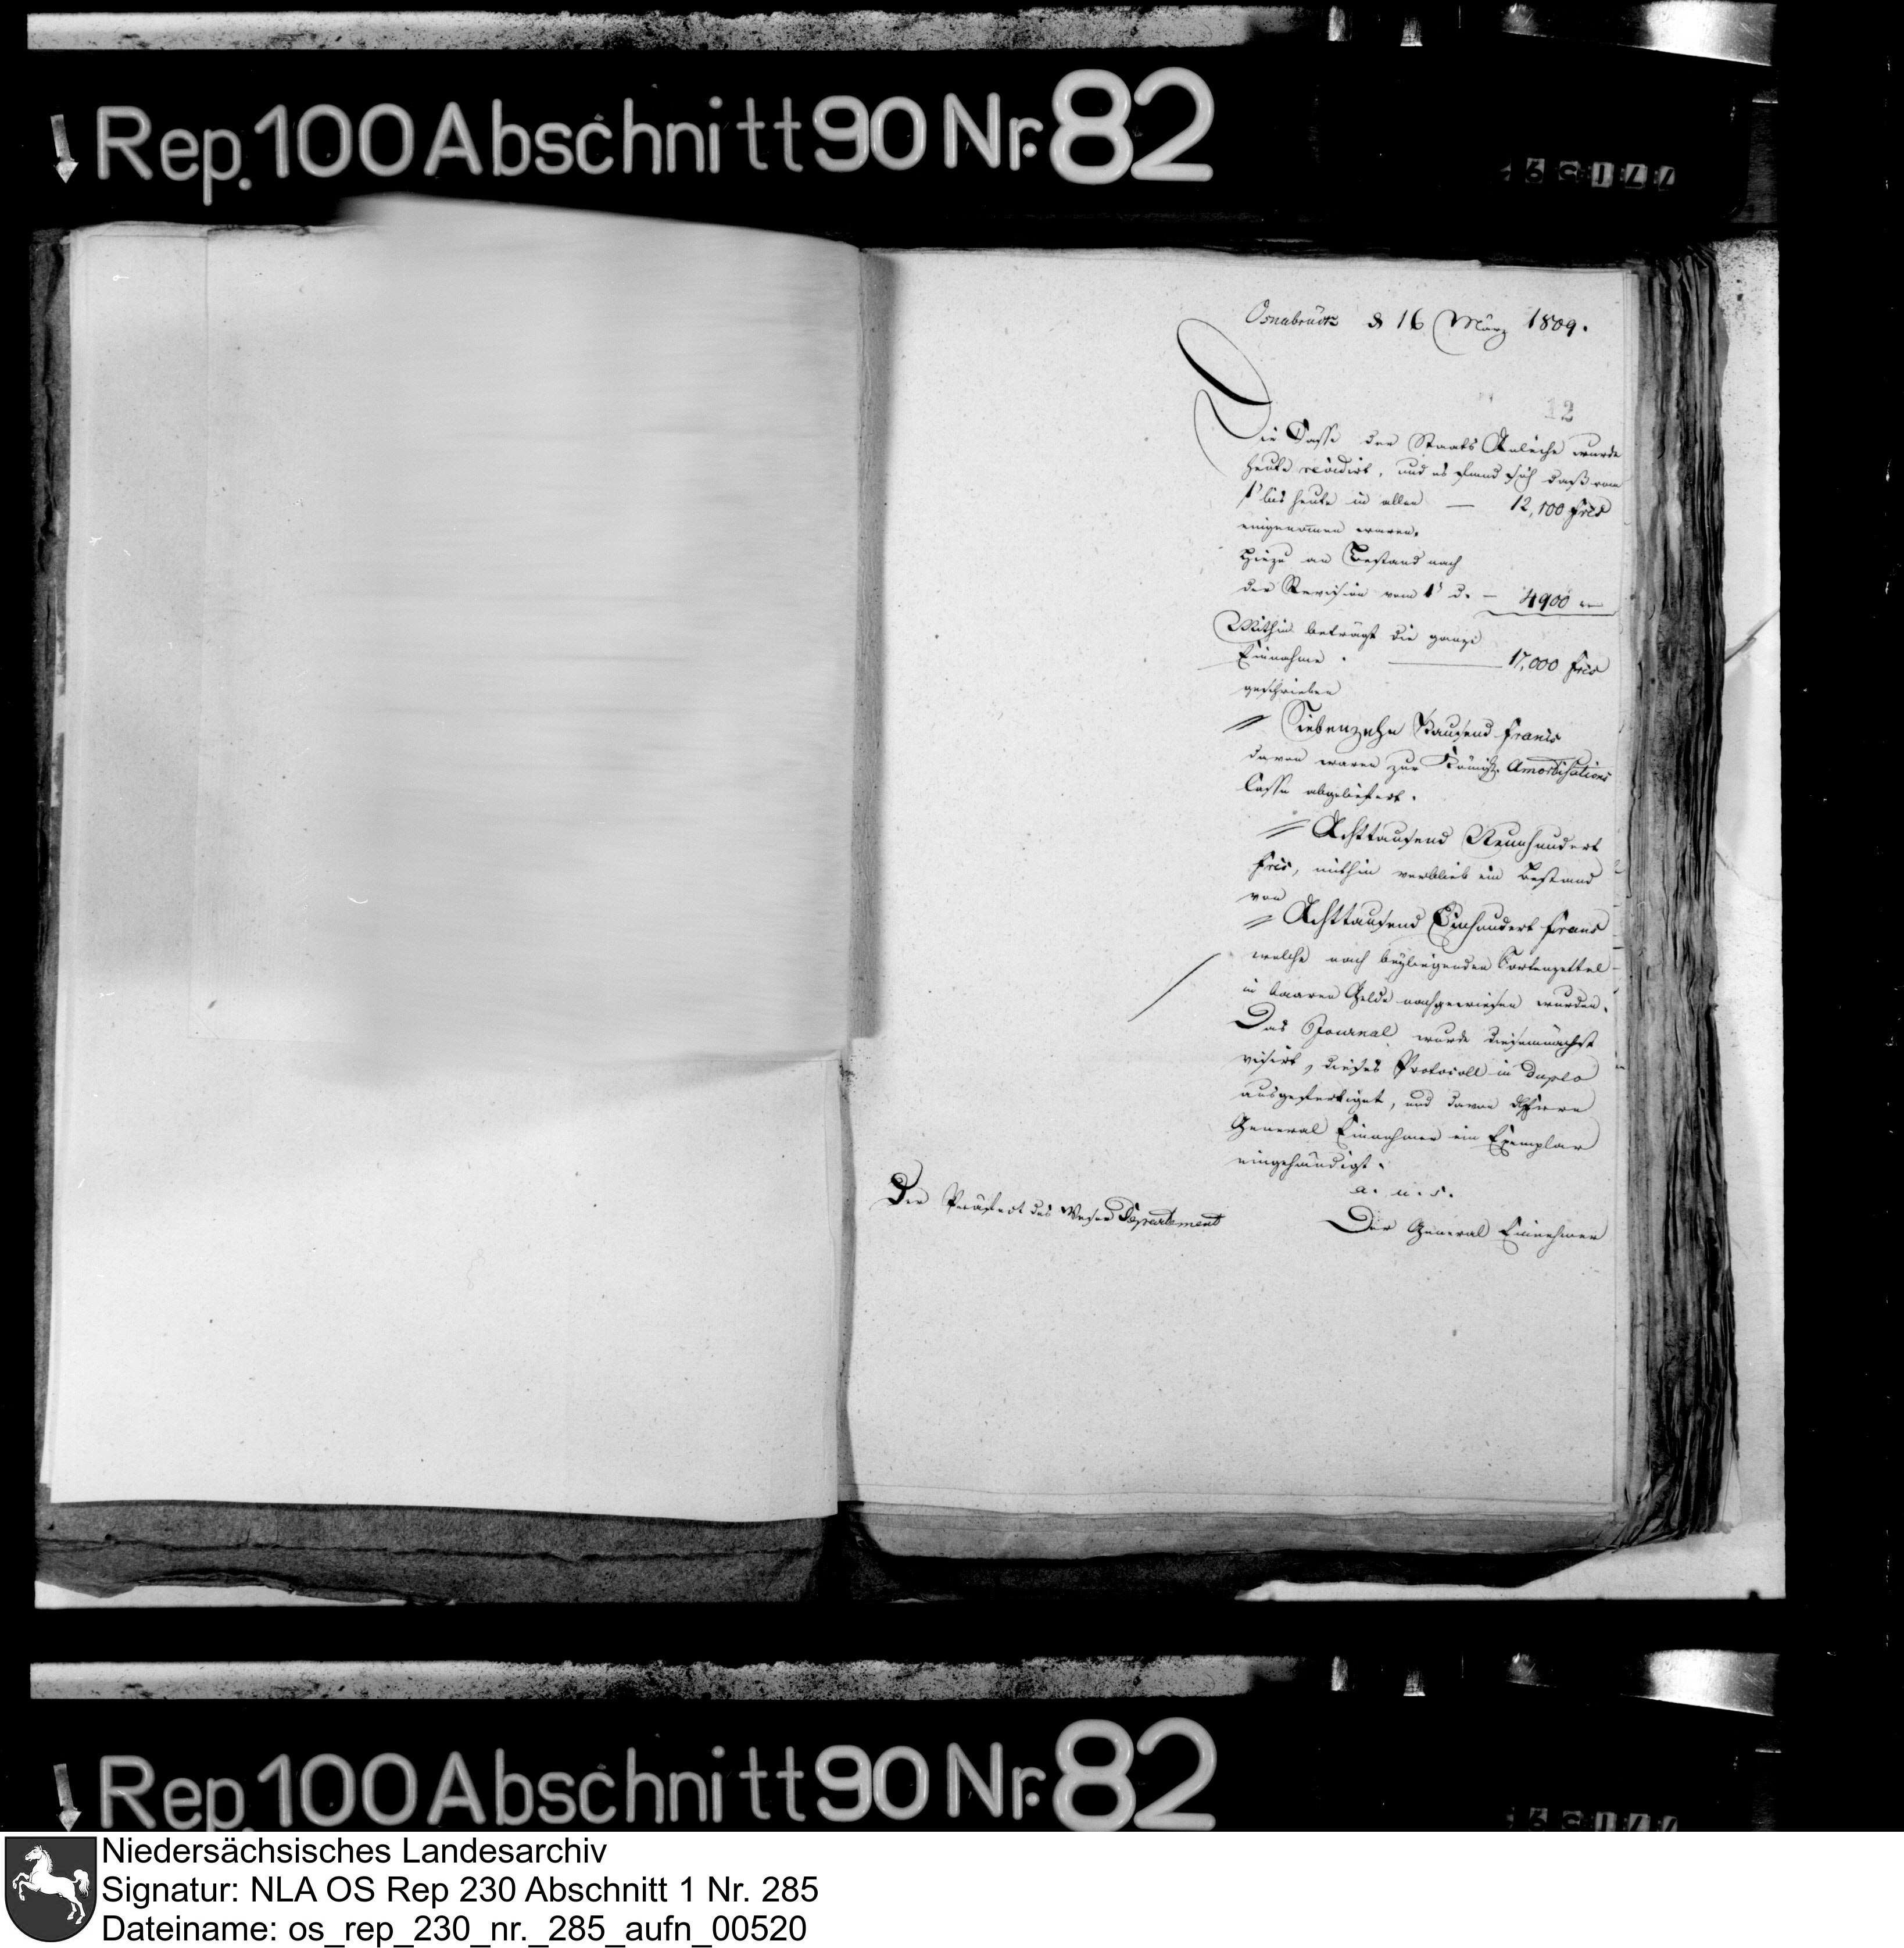 Rep. 100 Abschnitt 90 Nr. 82
Osnabrück d 16 März 1809.
12
Die Casse der Staats Anleihe wurde
heute revidirt, und es fand sich daß vom
1t bis heute in allen — 12,100 frcs
eingenommen waren.
Hiezu an Bestand nach
der Revision vom 1t d. — 4900
Mithin beträgt die ganze
Einnahme . — 17,000 frcs
geschrieben
Siebenzehn Tausend Francs
davon waren zur Königl. Amortisations
Casse abgeliefert.
Achttausend Neunhundert
frcs, mithin verblieb ein Bestand
von
Achttausend Einhundert francs
welche nach beyliegenden Sortenzettel
in baaren Gelde nachgewiesen wurden.
Das Journal wurde diesemnächst
visirt, dieses Protocoll in duplo
ausgefertiget, und davon Herrn
General Einnehmer ein Exemplar
eingehändigt.
a. u. s.
Der Präfect des Weser Departement
Der General Einnehmer
Rep. 100 Abschnitt 90 Nr. 82
Niedersächsisches Landesarchiv
Signatur: NLA OS Rep 230 Abschnitt 1 Nr. 285
Dateiname: os_rep_230_nr._285_aufn_00520